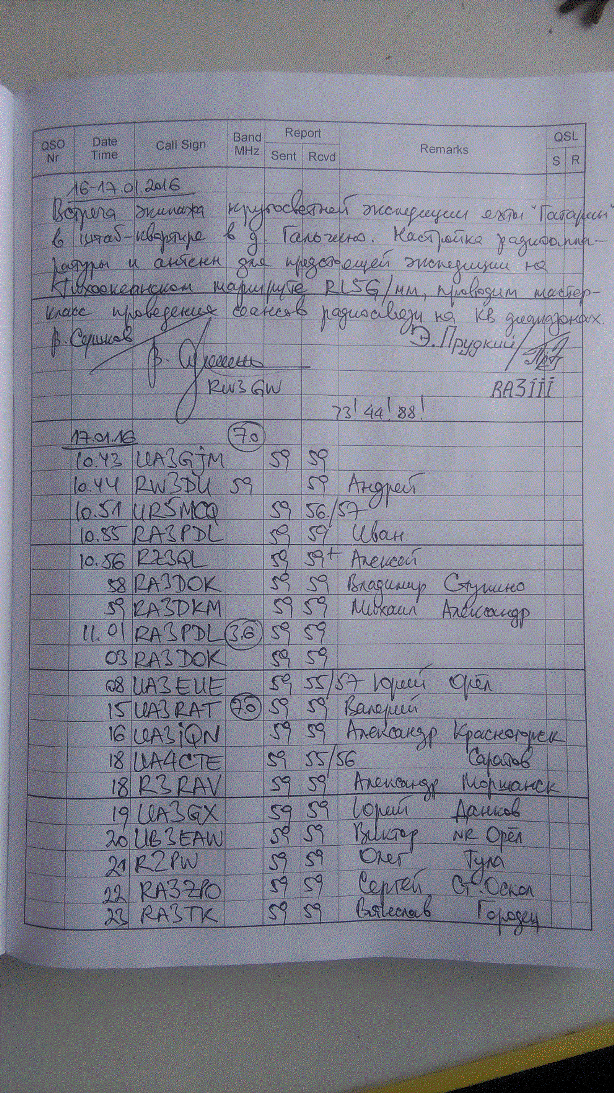 QSO Nr Date Time Call Sign Band MHz Report Sent Rcvd Remarks QSL S R
16-17.01.2016
Встреча экипажа кругосветной экспедиции яхты "Татарин"
в штаб-квартире в д. Галюгино. Настройка радиоаппа-
ратуры и антенн для предстоящей экспедиции на
Тихоокеанском маршруте RL5G/мм, проводим мастер-
класс проведения сеансов радиосвязи на КВ диапазонах.
Э. Прудкий
В.
RW3GW RA3III
73! 44! 88!
17.01.16 7.0
10.43 UA3GJM 59 59
10.44 RW3DU 59 59 Андрей
10.51 UR5MCQ 59 56/57
10.55 RA3PDL 59 59 Иван
10.56 RZ3QL 59 59+ Алексей
58 RA3DOK 59 59 Владимир Ступино
59 RA3DKM 59 59 Михаил Александр
11.01 RA3PDL 3.6 59 59
03 RA3DOK 59 59
08 UA3EUE 59 55/57 Юрий Орёл
15 UA3RAT 7.0 59 59 Валерий
16 UA3IQN 59 59 Александр Красногорск
18 UA4CTE 59 55/56 Саратов
18 R3RAV 59 59 Александр Моршанск
19 UA3GX 59 59 Юрий Данков
20 UB3EAW 59 59 Виктор NR Орёл
21 R2PW 59 59 Олег Тула
22 RA3ZPO 59 59 Сергей Ст. Оскол
23 RA3TK 59 59 Вячеслав Городец